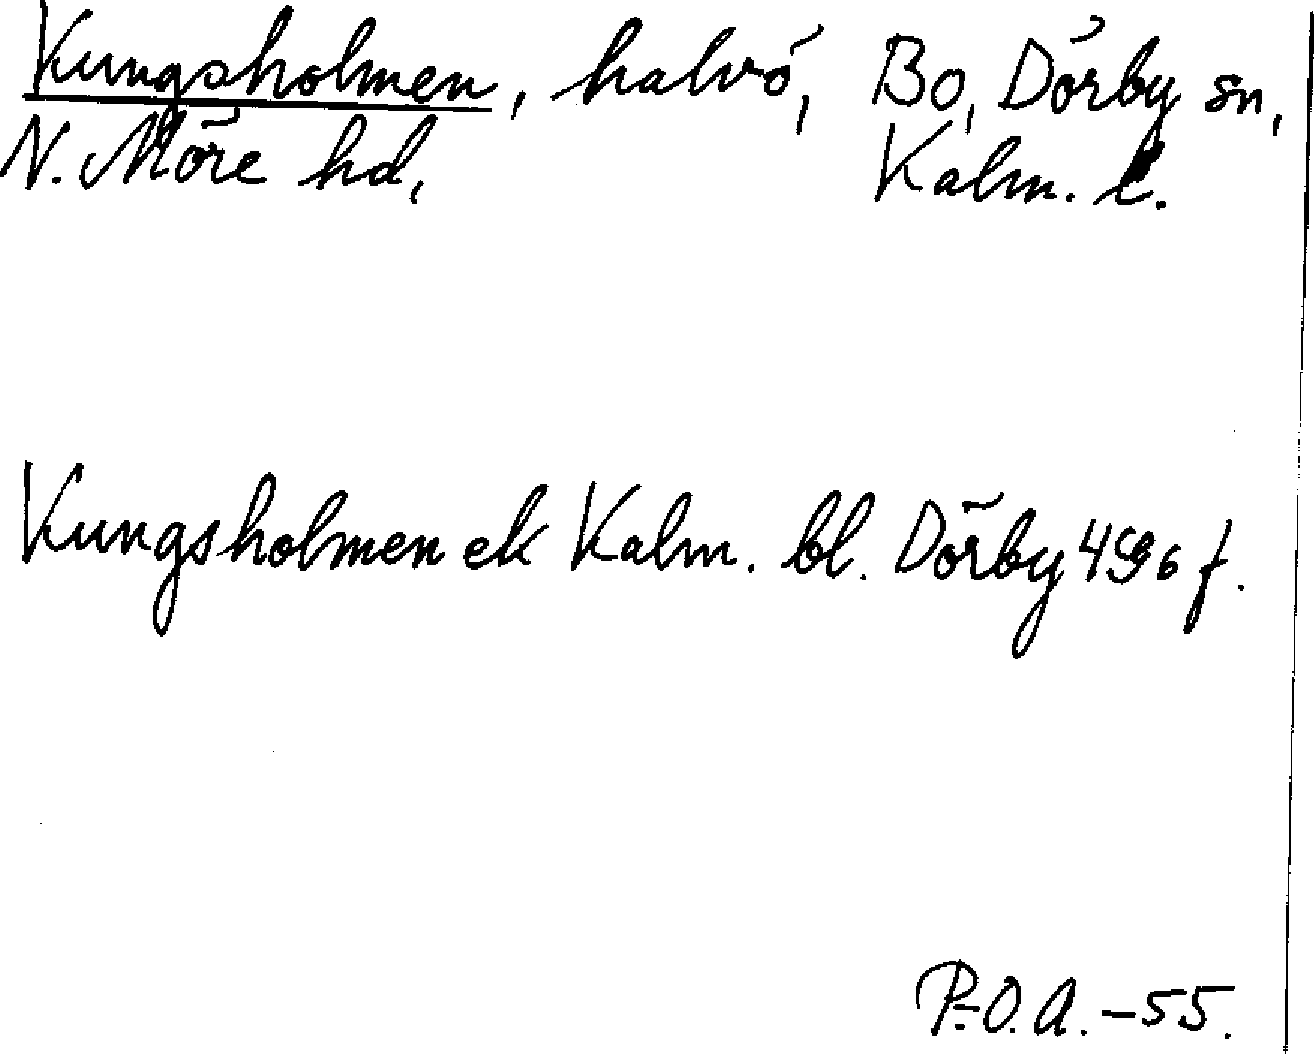 Kungsholmen, halvö, Bo, Dörby sn,
N. Möre hd, Kalm. l.
Kungsholmen ek Kalm. bl. Dörby 496 f.
P.-O.A. -55.